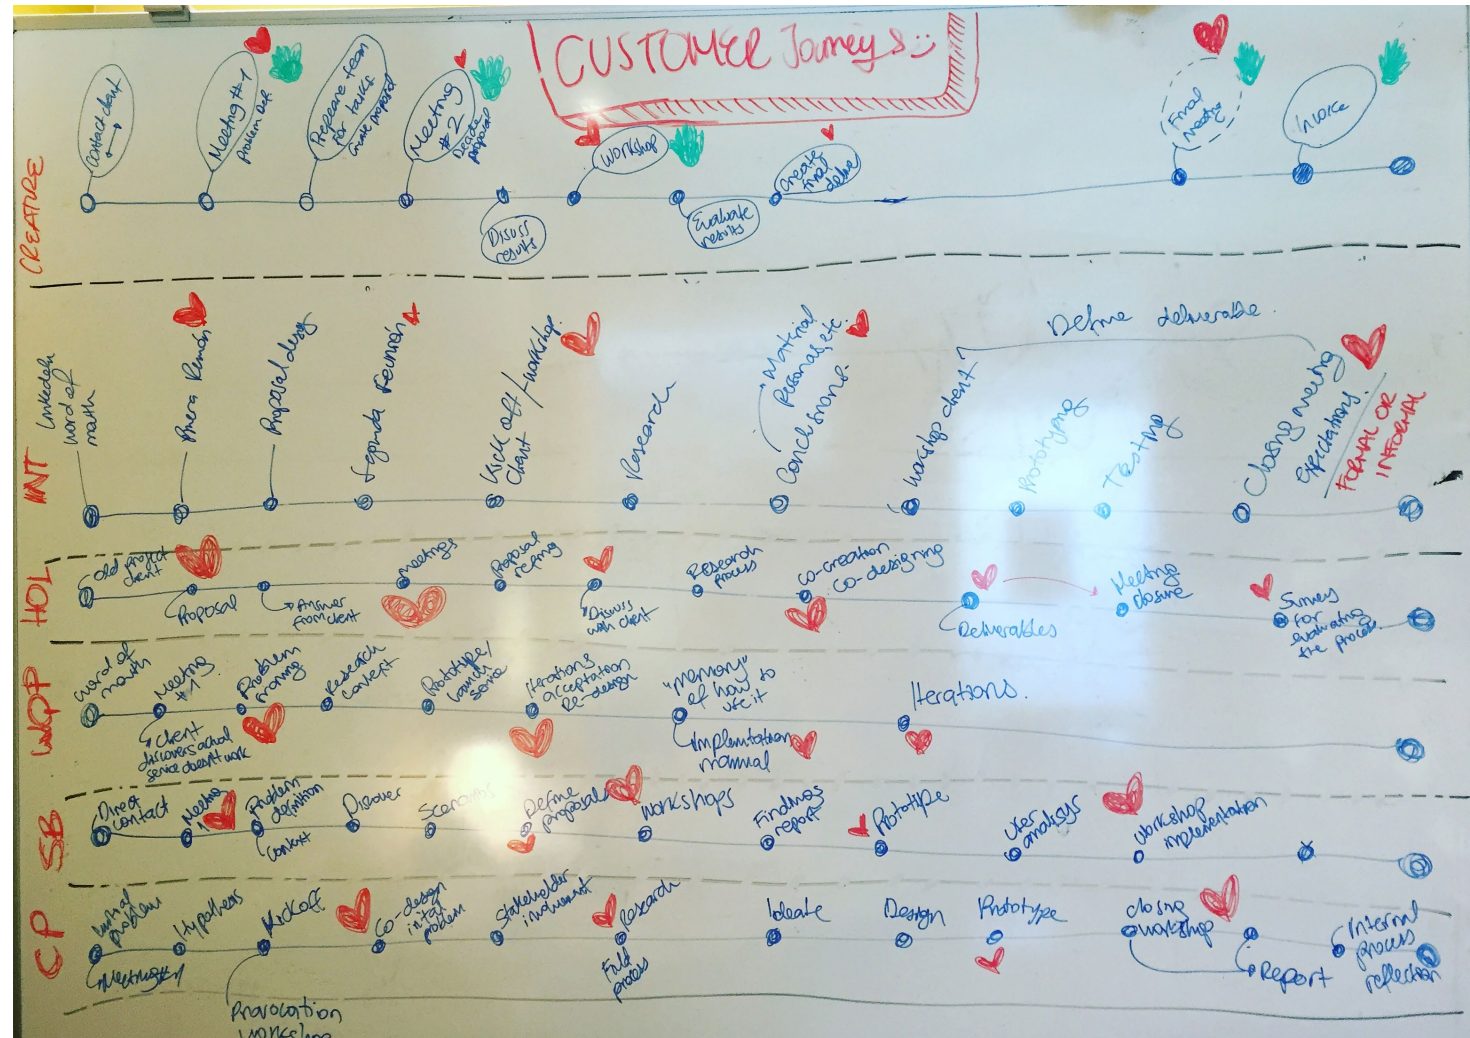 CUSTOMER Journeys
CREATURE
Contact client
Meeting #1
Problem Def
Prepeare team
for tasks.
Create proposal
Meeting
#2
Decide
proposal
Discuss
results
Workshop
Evaluate
results
Create
final
deliver
Final
meeting
Invoice
INT
word of
mouth
Proposal desing
Segunda Reunión
Kick off/workshop.
Client
Research
Material
Personas, etc.
Conclusions.
Workshop client?
Define deliverable.
Prototyping
Testing
Closing meeting
Expectations.
FORMAL OR
INFORMAL
HOL
Old project
client
Proposal
Answer
from client
meetings
Proposal
Discuss
with client
Research
process
co-creation
co-designing
Deliverables
Meeting
closure
Survey
for
evaluating
the process.
WQP
word of
mouth
Meeting
#1
client
discovers actual
service doesn't work
Problem
framing
Research
context
Prototype/
launch
service
Iterations
acceptation
Re-design
"memory"
of how to
use it
manual
Iterations.
SB
Direct
contact
Meeting
1
Problem
definition
Context
Discover
Scenarios
Define
proposal
Workshops
Findings
report
Prototype
User
analisys
Workshop
implementation
CP
Initial
problem
Meeting #1
Hypothesis
Kickoff
Provocation
workshop
Co-design
initial
problem
Stakeholder
Research
process
Ideate
Design
Prototype
closing
workshop
Report
Internal
process
reflection